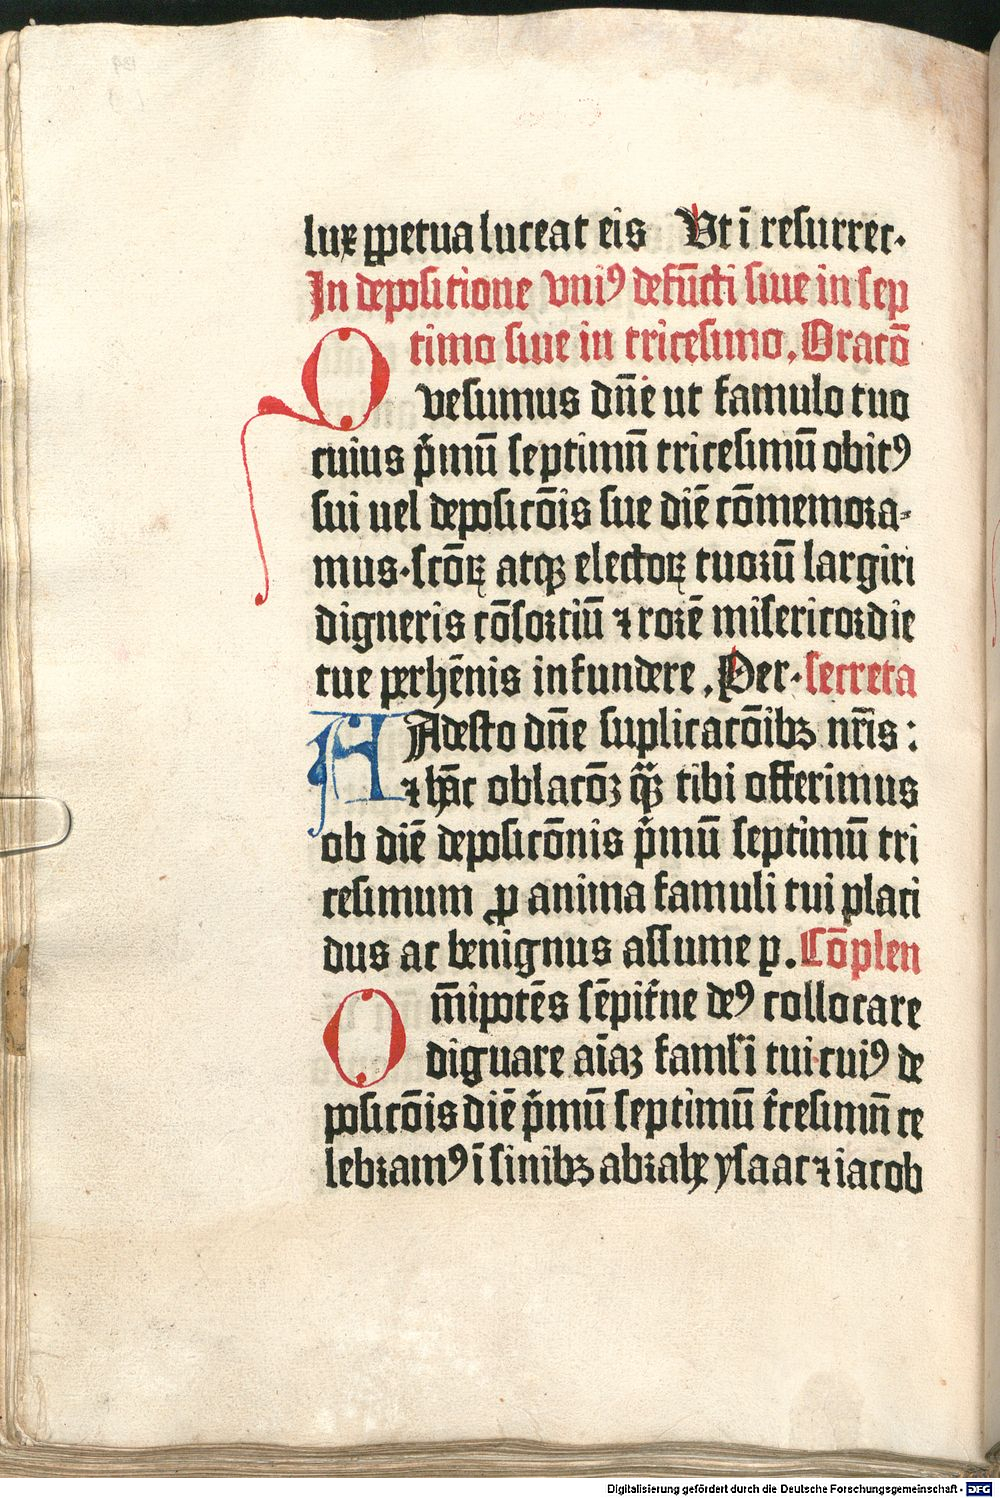 lux ꝑpetua luceat eis Ut ī resurrec·
In depositione vniꝰ defūcti siue in sep
timo siue in tricesimo. Oracō
Quesumus dn̄e ut famulo tuo
cuius p̄mū septimū tricesimū obitꝰ
sui uel deposicōis sue diē cōmemora-
mus·scōꝝ atqꝫ electoꝝ tuorū largiri
digneris cōsortiū ⁊ rorē misericordie
tue perhēnis infundere. Per· secreta
Adesto dn̄e suplicacōibꝫ nr̄is:
⁊ hāc oblacōꝫ quā tibi offerimus
ob diē deposicōnis p̄mū septimū tri
cesimum ꝓ anima famuli tui placi
dus ac benignus assume p. Cōplen
Om̄ipotēs sēpit̄ne deꝰ collocare
dignare aīaꝫ famĺi tui cuiꝰ de
posicōis diē p̄mū septimū t̄cesimū ce
lebramꝰ ī sinibꝫ abrahe ysaac ⁊ iacob
Digitalisierung gefördert durch die Deutsche Forschungsgemeinschaft - DFG